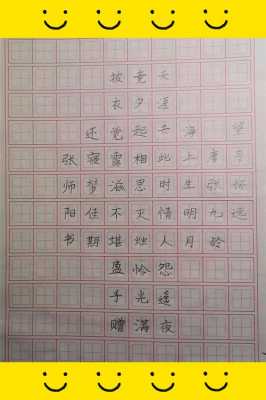 望月怀远
唐张九龄
海上生明月
天涯共此时情人怨遥夜
竟夕起相思灭烛怜光满
披衣觉露滋不堪盈手赠
还寝梦佳期
张师阳书